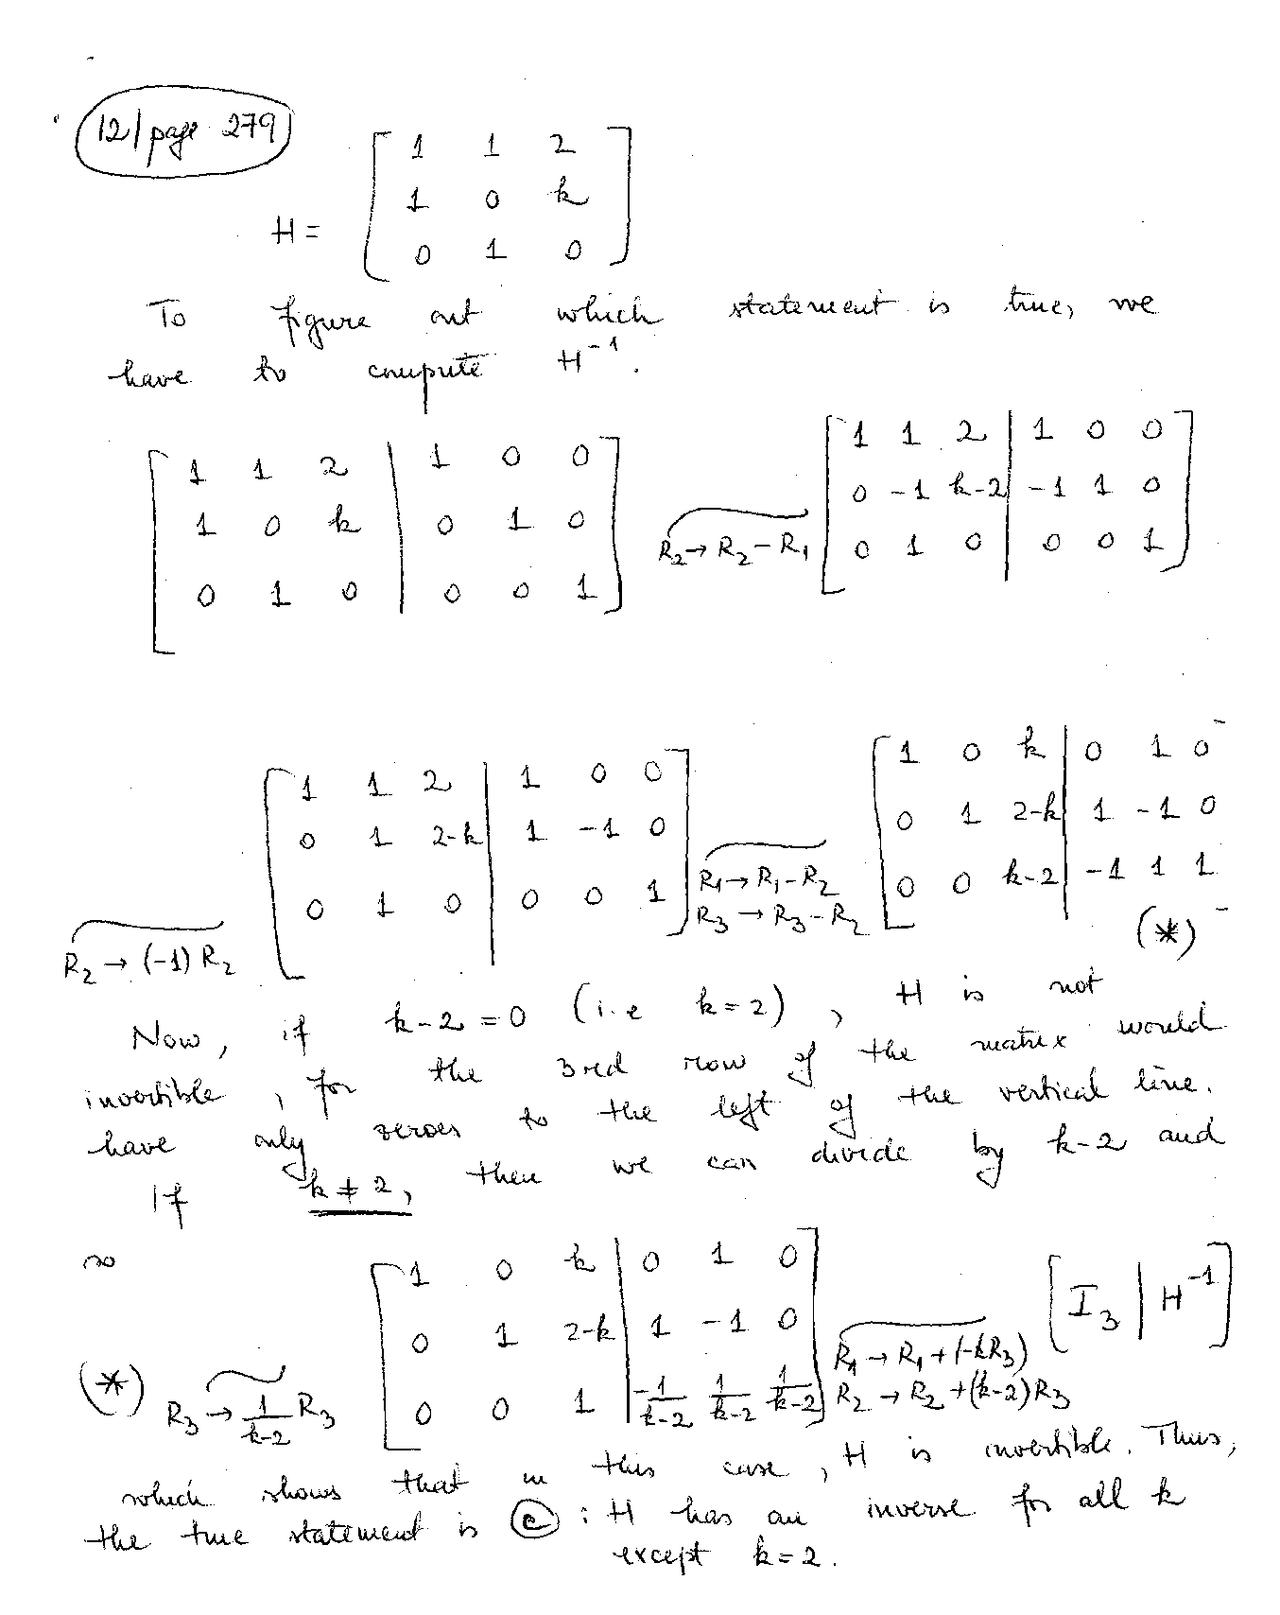 12/page 279
H = [ 1 1 2
1 0 k
0 1 0 ]
To figure out which statement is true, we
have to compute H⁻¹.
[ 1 1 2 | 1 0 0
1 0 k | 0 1 0
0 1 0 | 0 0 1 ]
R₂→R₂-R₁
[ 1 1 2 | 1 0 0
0 -1 k-2 | -1 1 0
0 1 0 | 0 0 1 ]
R₂→(-1)R₂
[ 1 1 2 | 1 0 0
0 1 2-k | 1 -1 0
0 1 0 | 0 0 1 ]
R₁→R₁-R₂
R₃→R₃-R₂
[ 1 0 k | 0 1 0
0 1 2-k | 1 -1 0
0 0 k-2 | -1 1 1 ]
(*)
Now, if k-2=0 (i.e k=2), H is not
invertible, for the 3rd row of the matrix would
have only zeroes to the left of the vertical line.
If k≠2, then we can divide by k-2 and
so
(*) R₃→1/(k-2) R₃
[ 1 0 k | 0 1 0
0 1 2-k | 1 -1 0
0 0 1 | -1/(k-2) 1/(k-2) 1/(k-2) ]
R₁→R₁+(-kR₃)
R₂→R₂+(k-2)R₃
[ I₃ | H⁻¹ ]
which shows that in this case, H is invertible. Thus,
the true statement is (c): H has an inverse for all k
except k=2.